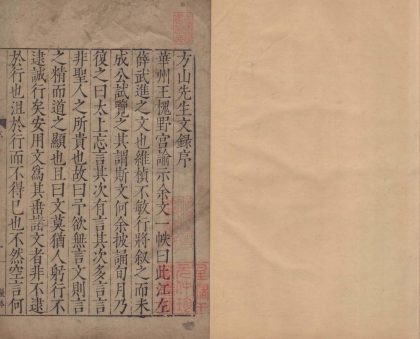 方山先生文錄序
華州王槐野宮諭示余文一帙曰此江左
薛武進之文也維楨不敏行將敘之而未
成公試覽之其謂斯文何余披誦旬月乃
復之曰太上忘言其次有言其次多言言
非聖人之所貴也故曰予欲無言文則言
之精而道之顯也且曰文莫猶人躬行不
逮誠行矣安用文爲其垂諸文者非不逮
於行也沮於行而不得已也不然空言何